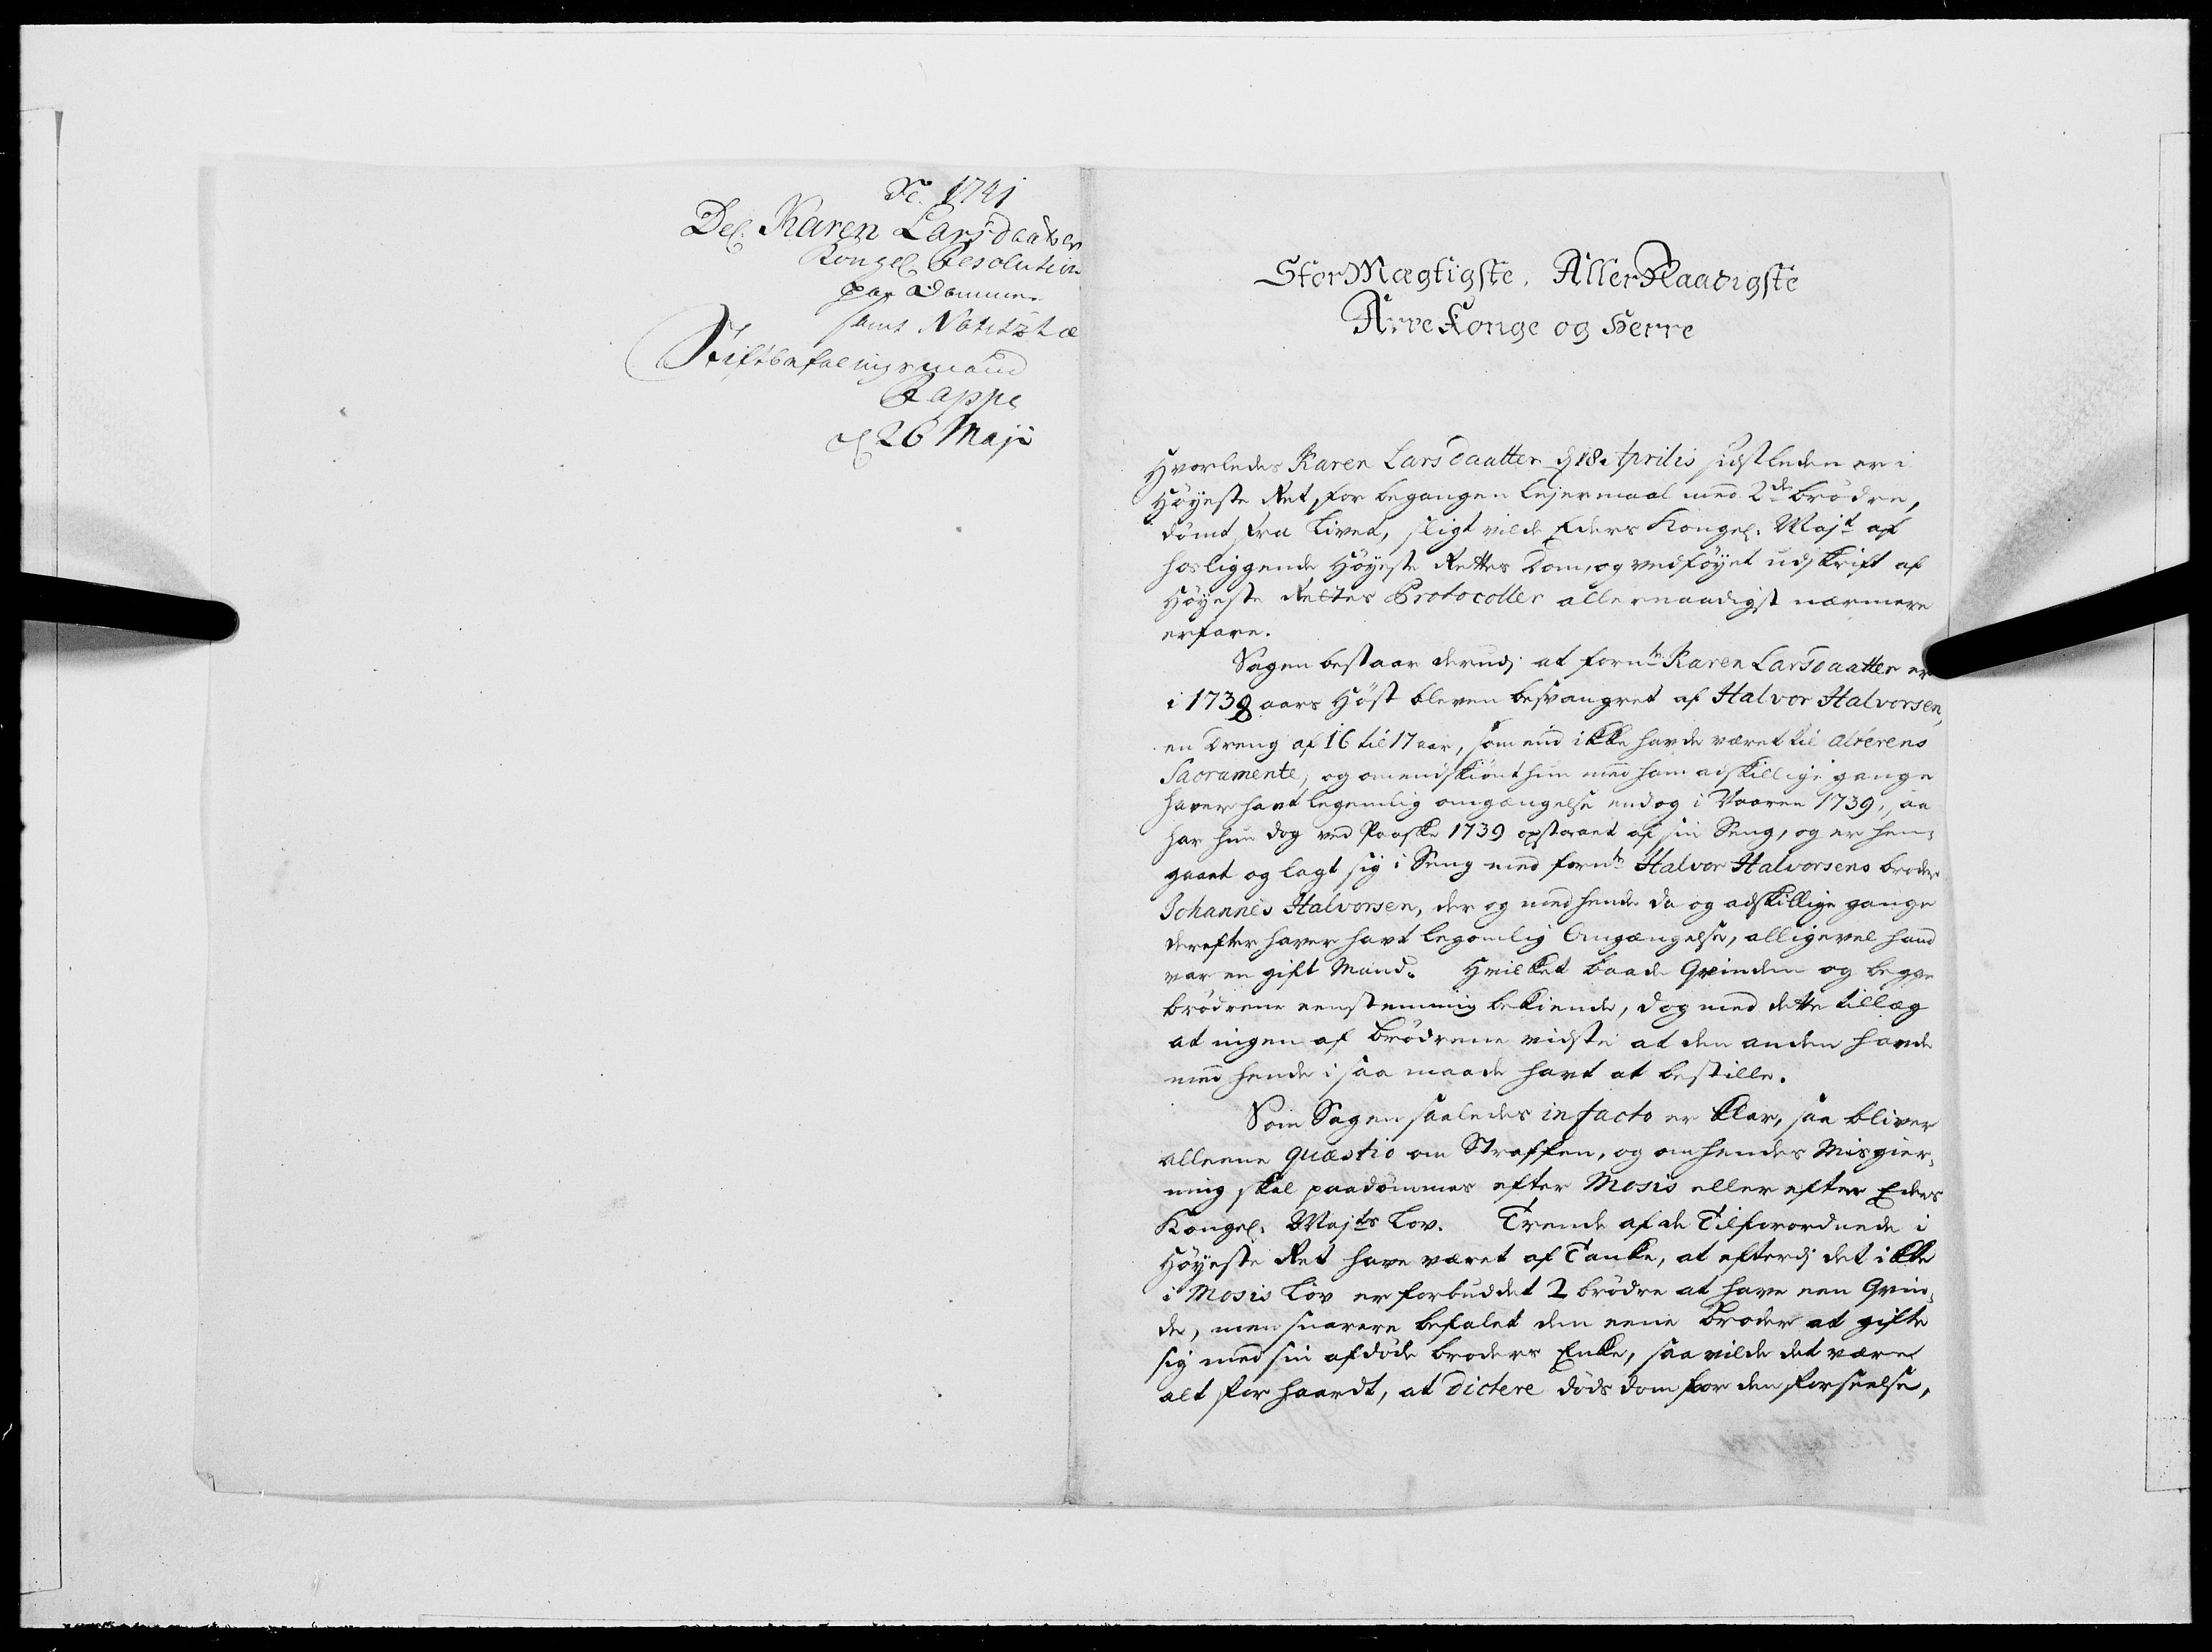 1741
Del. Karen Larsdaatter
Kongel. Resolution
paa Dommen
samt Notitz t
Stiftbefalingsmand
Rappe
d. 26 Maji
StorMægtigste, AllerNaadigste
ArveKonge og Herre
Hvorledes Karen Larsdaatter d. 18 Aprilis sidstleden er i
Höyeste Ret, for begangen Lejermaal med 2de brödre,
dömt fra Livet, sligt vilde Eders Kongel. Majt af
hosliggende Höyeste Rettes Dom, og vedföyet udskrift af
Höyeste Rettes Protocoller allernaadigst nærmere
erfare.
Sagen bestaar derudj at fornte Karen Larsdaatter er
i 1738 aars Höst bleven besvangret af Halvor Halvorsen,
en Dreng af 16 til 17 aar, som end ikke havde været til alterens
Sacramente, og omendskiönt hun med ham adskillige gange
haver havt legemlig omgængelse endog i Vaaren 1739, saa
har hun dog ved Paaske 1739 opstaaet af sin Seng, og er hen-
gaaet og lagt sig i Seng med fornte Halvor Halvorsens broder
Johannes Halvorsen, der og med hende da og adskillige gange
derefter haver havt legemlig Omgængelse, alligevel hand
var en gift Mand. Hvilket baade Qvinden og begge
brödrene eenstemmig bekiende, dog med dette tillæg
at ingen af brödrene vidste at den anden havde
med hende i saa maade havt at bestille.
Som Sagen saaledes in facto er klar, saa bliver
alleene quæstio om Straffen, og om hendes Misgier-
ning skal paadömmes efter Mosis eller efter Eders
Kongel. Majts Lov. Trende af de Tilforordnede i
Höyeste Ret have været af Tanke, at efterdj det ikke
i Mosis Lov er forbuddet 2 brödre at have een Qvin-
de, men snarere befalet den eene broder at gifte
sig med sin afdöde broders Enke, saa vilde det være
alt for haardt, at dictere döds dom for den forseelse,